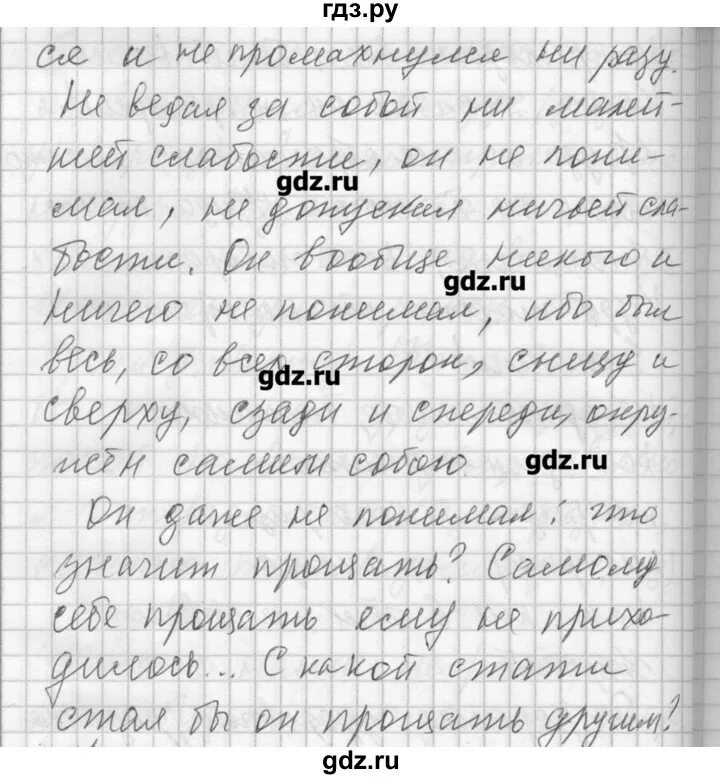 гдз.ру
ся и не промахнулся ни разу.
Не ведал за собой ни малей-
шей слабости, он не пони-
gdz.ru
мал, не допускал ничьей сла-
бости. Он вообще никого и
gdz.ru
ничего не понимал, ибо был
весь, со всех сторон, снизу и
gdz.ru
сверху, сзади и спереди, окру-
жён самим собою.
gdz.ru
Он даже не понимал: что
значит прощать? Самому
себе прощать ему не прихо-
дилось... С какой стати
стал бы он прощать другим?
gdz.ru